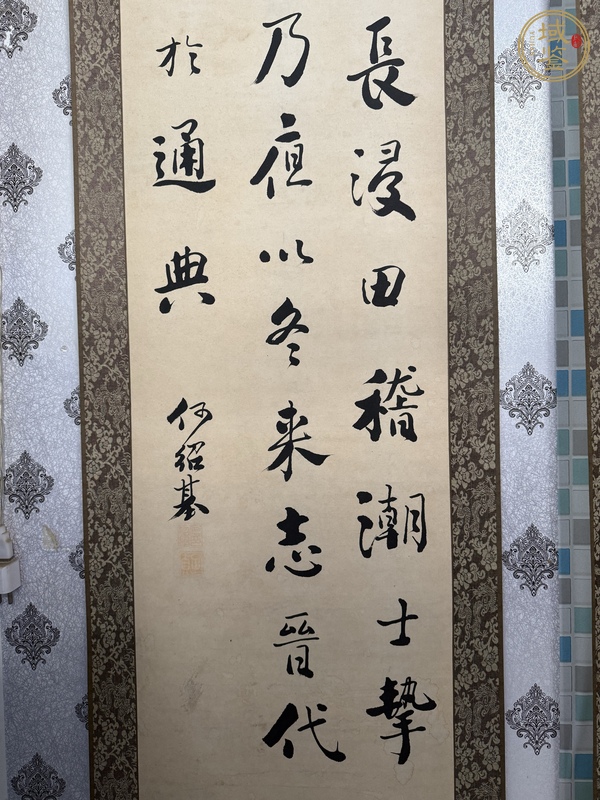 長浸田稽潮士摯
乃疽以冬来志晉代
於通典
何紹基